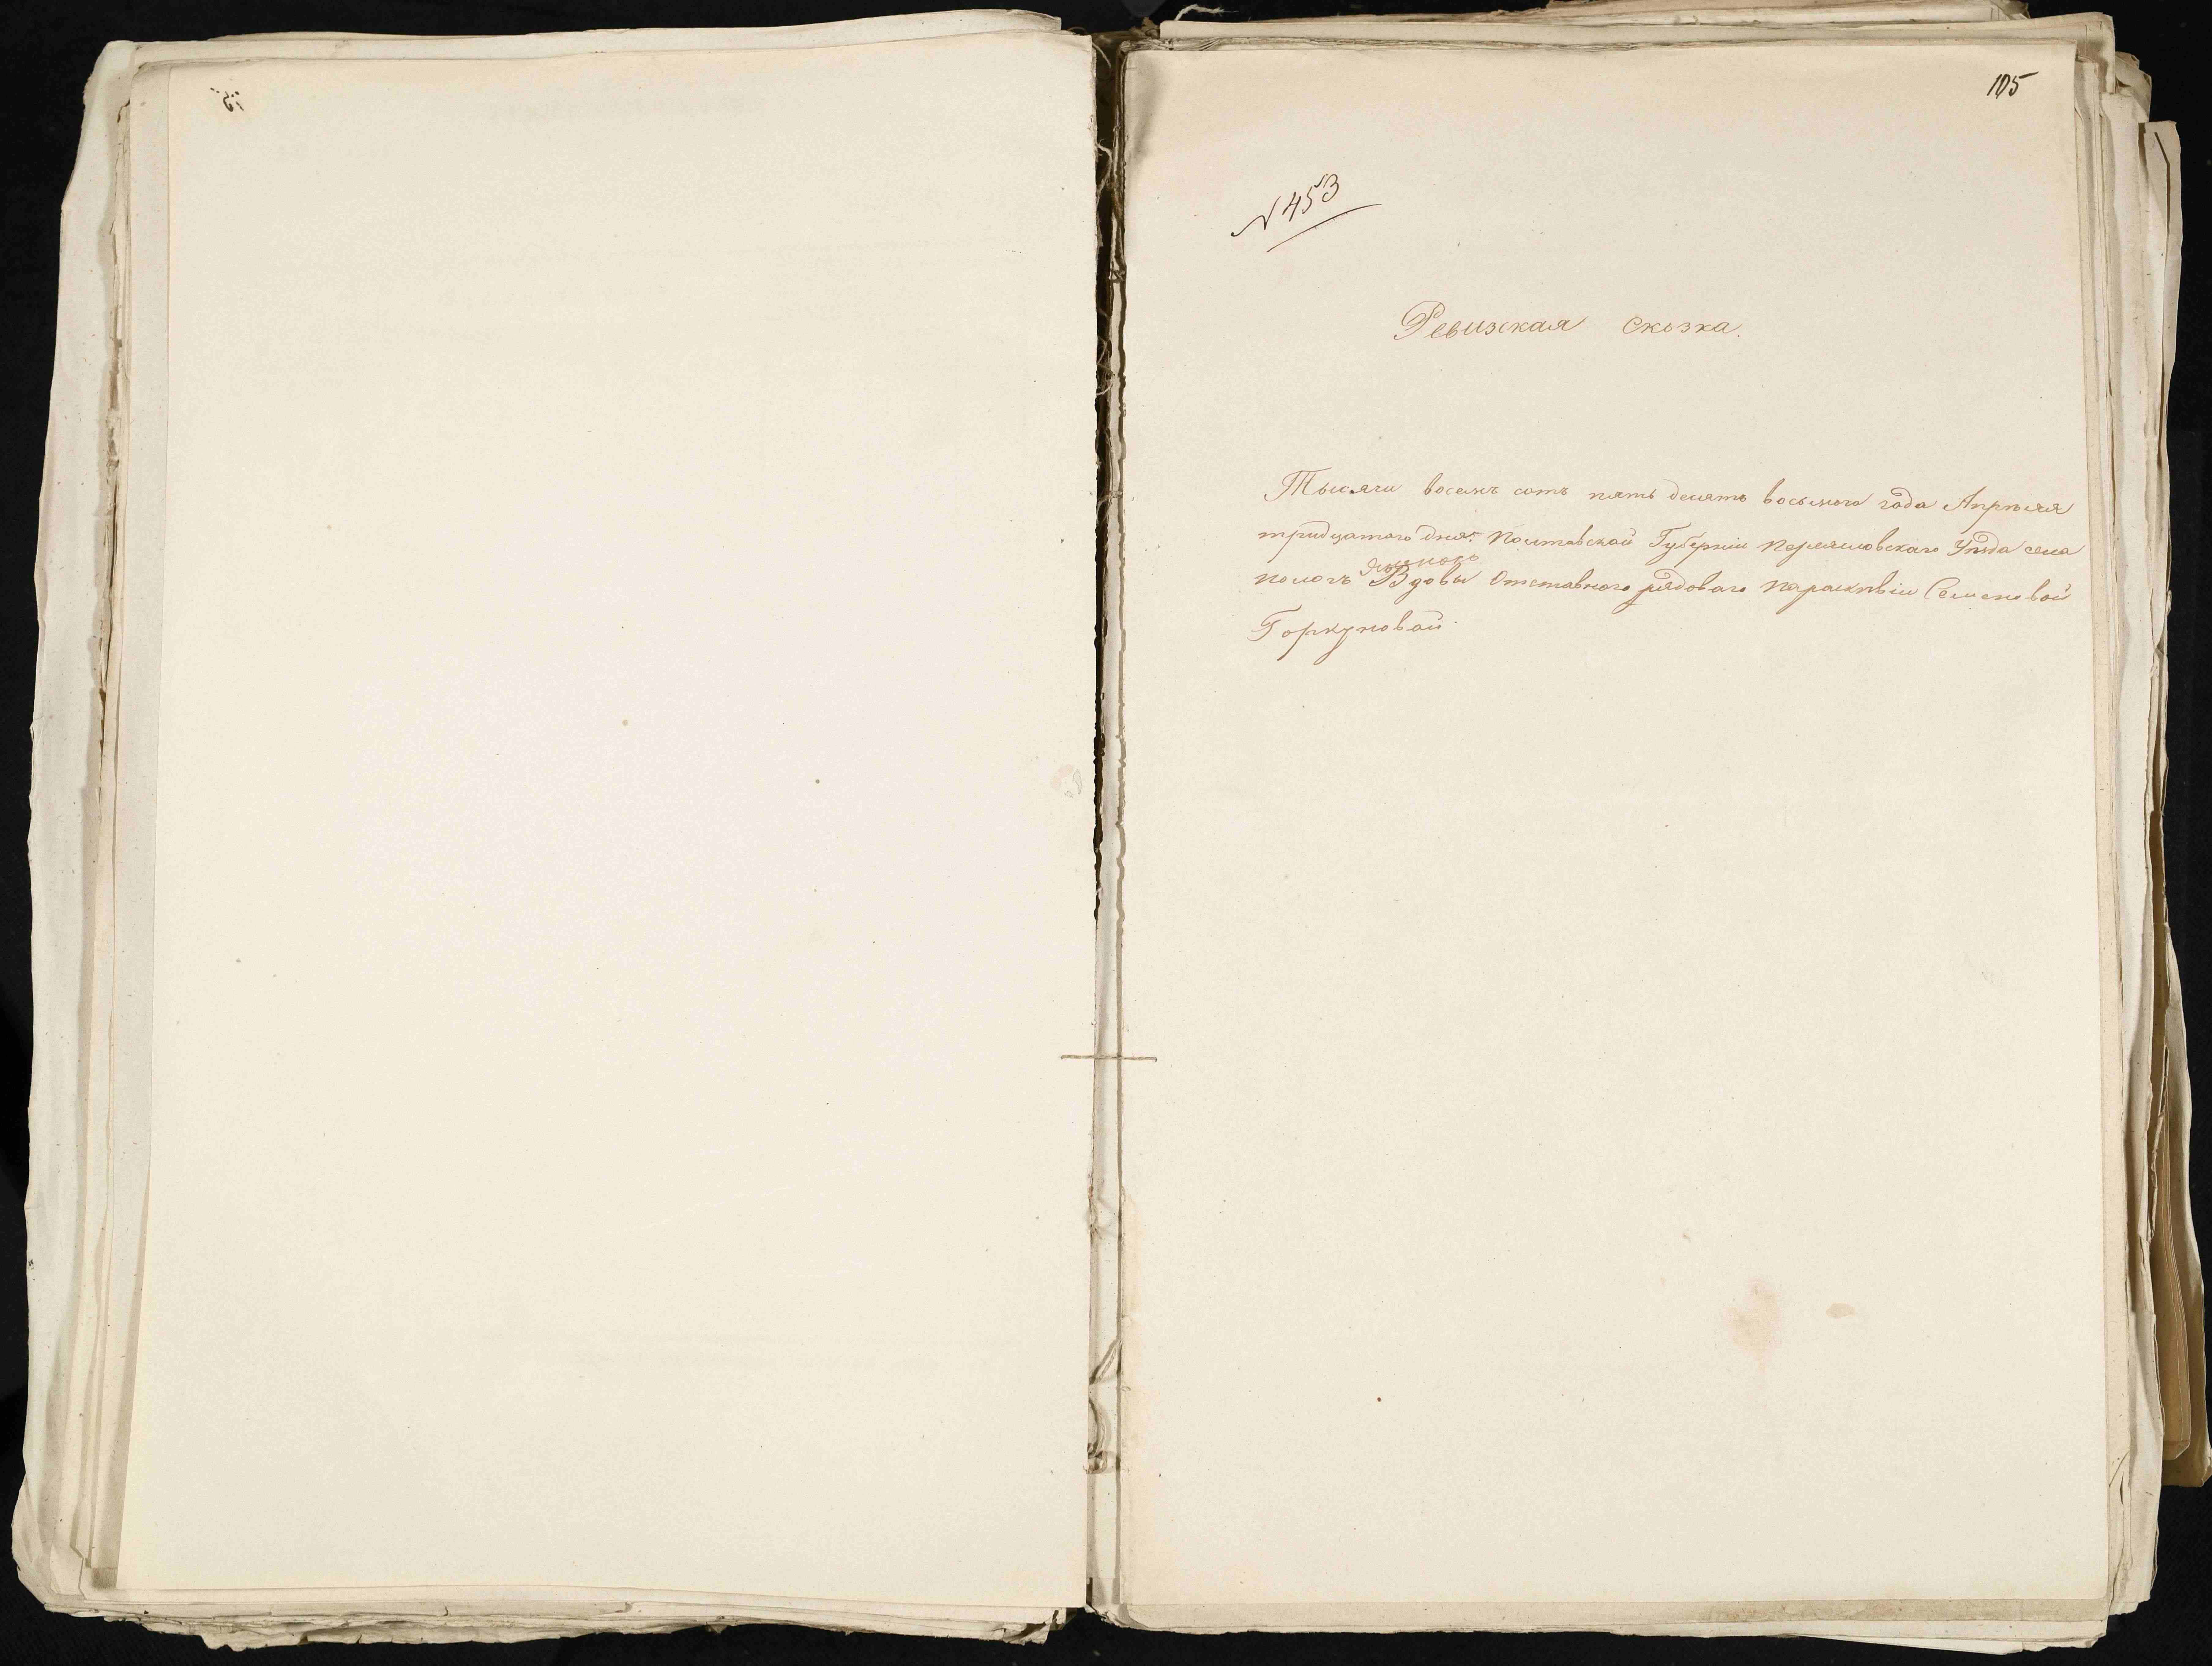 105
N 453
Ревизская Сказка.
Тысяча восемь сотъ пять десятъ восьмого года Апрѣля
тридцатого дня. Полтавской Губерніи Переяславскаго Уѣзда села
Вдовы Отставного рядоваго Параскѣвіи Семеновой
Горкуновой.